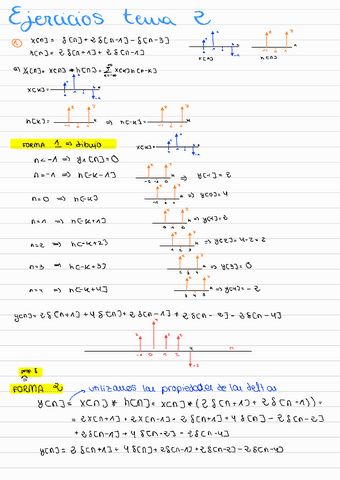 Ejercicios tema 2
① x[n] = δ[n] + 2δ[n-1] - δ[n-3]
h[n] = 2δ[n+1] + 2δ[n-1]
x[n] h[n]
a) y[n] = x[n] * h[n] = Σ x[k] h[n-k]
x[k] =
h[k] = ⇒ h[-k] =
FORMA 1 ⇒ dibujo x[k] =
n < -1 ⇒ y[n] = 0
n = -1 ⇒ h[-k-1] ⇒ y[-1] = 2
n = 0 ⇒ h[-k] ⇒ y[0] = 4
n = 1 ⇒ h[-k+1] ⇒ y[1] = 2
n = 2 ⇒ h[-k+2] ⇒ y[2] = 4-2 = 2
n = 3 ⇒ h[-k+3] ⇒ y[3] = 0
n = 4 ⇒ h[-k+4] ⇒ y[4] = -2
y[n] = 2δ[n+1] + 4δ[n] + 2δ[n-1] + 2δ[n-2] - 2δ[n-4]
-1 0 1 2
-2
FORMA 2 → utilizamos las propiedades de las deltas
y[n] = x[n] * h[n] = x[n] * (2δ[n+1] + 2δ[n-1]) =
= 2x[n+1] + 2x[n-1] = 2δ[n+1] + 4δ[n] - 2δ[n-2]
+ 2δ[n-1] + 4δ[n-2] - 2δ[n-4]
y[n] = 2δ[n+1] + 4δ[n] + 2δ[n-1] + 2δ[n-2] - 2δ[n-4]